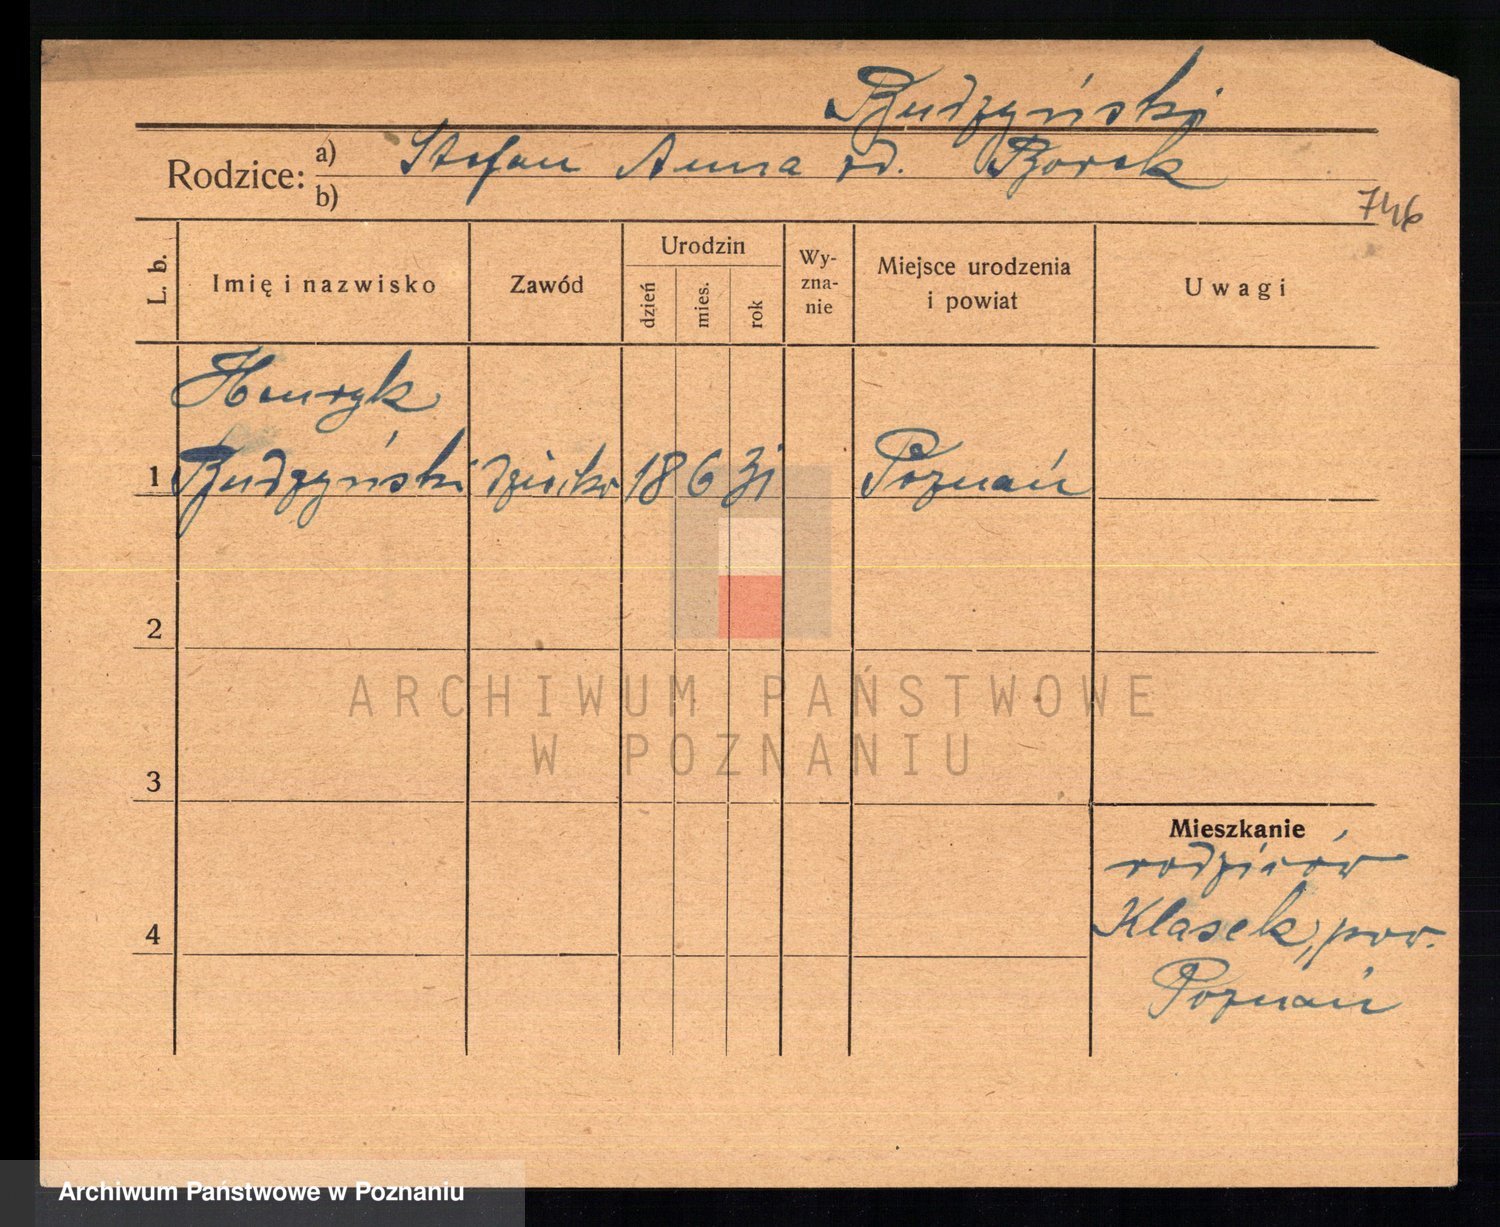 Budzyński
Rodzice: a) Stefan Anna rd. Borek
b)
746
L. b. Imię i nazwisko Zawód Urodzin dzień mies. rok Wy-zna-nie Miejsce urodzenia i powiat Uwagi
Henryk
1 Budzyński dziecko 18 6 31 Poznań
2
ARCHIWUM PAŃSTWOWE
W POZNANIU
3
Mieszkanie
rodziców
Klasek, pow.
4
Poznań
Archiwum Państwowe w Poznaniu